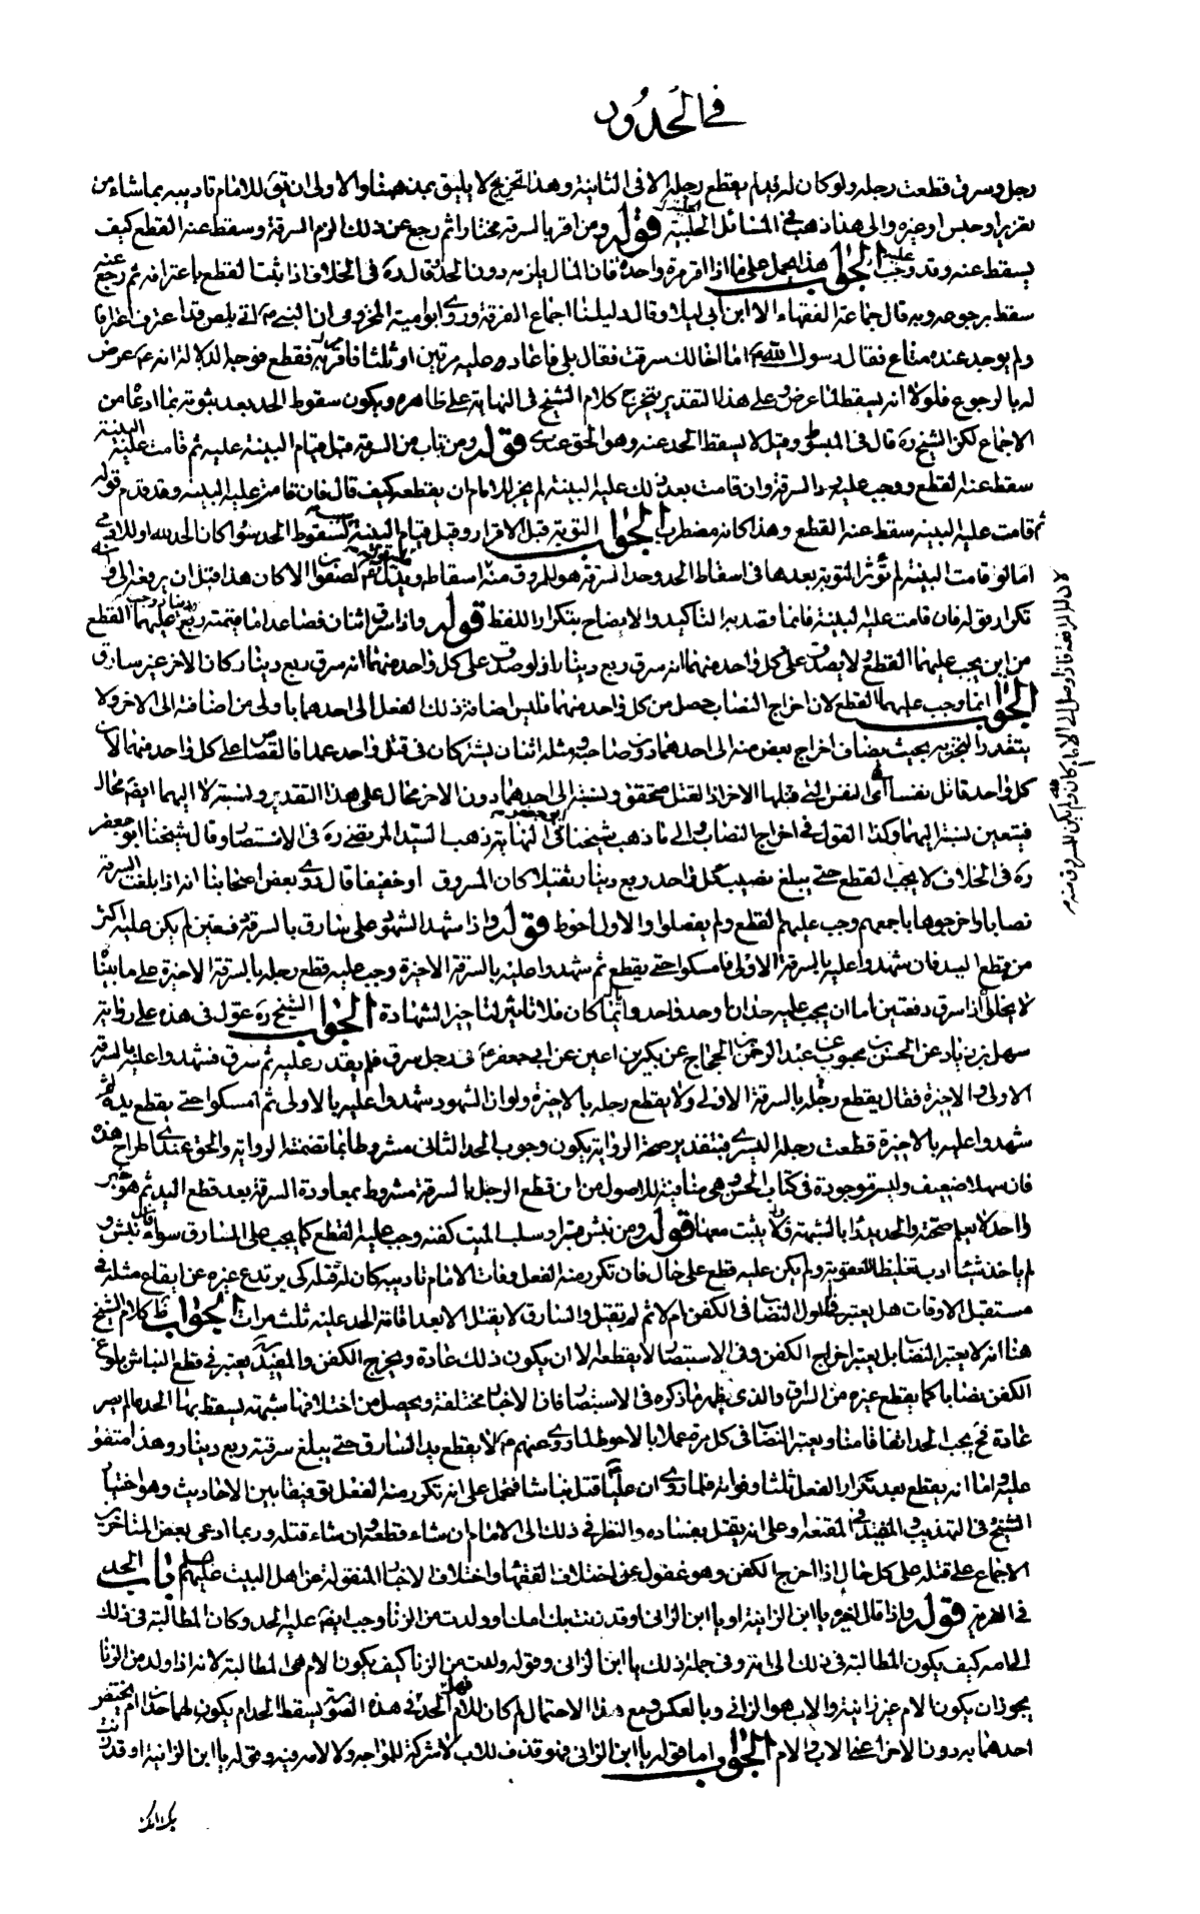 في الحدود
رجل وسرق قطعت رجله ولو كان له يد لم يقطع رجله الا في الثانية وهذا تخريج لا يليق بمذهبنا والاولى ان يبقى للامام تاديبه بما شاء من
تعزير او حبس او غيره والى هذا ذهب في المسائل الحلبية قوله ومن اقر بالسرقة مختارا ثم رجع عن ذلك الزم السرقة وسقط عنه القطع كيف
يسقط عنه وقد وجب عليه الجواب هذا يحمل على ما اذا اقر مرة واحدة فان المال يلزمه دون الحد قال ره في الخلاف اذا ثبت القطع باعترافه ثم رجع عنه
سقط برجوعه وبه قال جماعة الفقهاء الا ابن ابي ليلى وقال دليلنا اجماع الفرقة وروى ابو امية المخزومي ان النبي م اتى بلص قد اعترف اعترافا
ولم يوجد عنده متاع فقال رسول الله م ما اخالك سرقت فقال بلى فاعاد عليه مرتين او ثلثا فامر به فقطع فوجه الدلالة انه ع م عرض
له بالرجوع فلولا انه يسقط لما عرض وعلى هذا التقدير يتخرج كلام الشيخ في النهاية على ظاهره ويكون سقوط الحد بعد ثبوته بما ادعاه من
الاجماع لكن الشيخ ره قال في المبسوط وقيل لا يسقط الحد عنه وهو الحق عندي قوله ومن تاب من السرقة قبل قيام البينة عليه ثم قامت عليه البينة
سقط عنه القطع ووجب عليه رد السرقة وان قامت بعد ذلك عليه البينة لم يجز للامام ان يقطعه كيف قال فان قامت عليه البينة وقد قدم قوله
ثم قامت عليه البينة سقط عنه القطع وهذا كانه مضطرب الجواب التوبة قبل الاقرار وقبل قيام البينة مسقط لسقوط الحد سواء كان الحد لله او للادمي
اما لو قامت البينة لم تؤثر التوبة بعدها في اسقاط الحد وحد السرقة هو للمسروق منه اسقاطه
تكرار قوله فان قامت عليه البينة فانما قصد به التاكيد والايضاح بتكرار اللفظ قوله واذا سرق اثنان فصاعدا ما قيمته ربع دينار وجب عليهما القطع
من اين يجب عليهما القطع ولا يصدق على كل واحد منهما انه سرق ربع دينار اذ لو صدق على كل واحد منهما انه سرق ربع دينار كان الاخر غير سارق
الجواب انما وجب عليهما القطع لان اخراج النصاب حصل من كل واحد منهما فليس اضافة ذلك الفعل الى احدهما باولى من اضافته الى الاخر ولا
يتقدر التجزيه بحيث يضاف اخراج بعض منه الى احدهما دون صاحبه ومثله اثنان يشتركان في قتل واحد عمدا فالقصاص على كل واحد منهما لان
كل واحد قاتل نفسا اي النفس التي قتلها الاخر اذ القتل محقق ونسبته الى احدهما دون الاخر محال على هذا التقدير ولا نسبته لا اليهما ايضا محال
فيتعين نسبته اليهما وكذا القول في اخراج النصاب والى ما ذهب شيخنا في النهاية ذهب السيد المرتضى ره في الانتصار وقال شيخنا ابو جعفر
ره في الخلاف لا يجب القطع حتى يبلغ نصيب كل واحد ربع دينار ثقيلا كان المسروق او خفيفا قال روى بعض اصحابنا انه اذا بلغت السرقة
نصابا واخرجوها باجمعهم وجب عليهم القطع ولم يفصلوا والاول احوط قوله واذا شهد الشهود على سارق بالسرقة دفعتين لم يكن عليه اكثر
من قطع اليد فان شهدوا عليه بالسرقة الاولى فامسكوا حتى يقطع ثم شهدوا عليه بالسرقة الاخيرة وجب عليه قطع رجله بالسرقة الاخيرة على ما بيناه
لا يخلو اذا سرق دفعتين اما ان يجب عليه حدان او حد واحد وايهما كان فلا تاثير لتاخير الشهادة الجواب الشيخ ره عول في هذه على رواية
سهل بن زياد عن الحسن بن محبوب عن عبد الرحمن بن الحجاج عن بكير بن اعين عن ابي جعفر ع م في رجل سرق فلم يقدر عليه ثم سرق فشهدوا عليه بالسرقة
الاولى والاخيرة فقال يقطع رجله بالسرقة الاولى ولا يقطع رجله بالاخيرة ولو ان الشهود شهدوا عليه بالاولى ثم امسكوا حتى يقطع يده ثم
شهدوا عليه بالاخيرة قطعت رجله اليسرى فبتقدير صحة الرواية يكون وجوب الحد الثاني مشروطا بما تضمنته الرواية والحق عندي اطراح هذه
فان سهلا ضعيف وليس موجودة في كتاب الحسن وهي منافية للاصول من ان قطع الرجل بالسرقة مشروط بمعاودة السرقة بعد قطع اليد ثم هو خبر
واحد لا يعلم صحته والحد يدرا بالشبهة فلا يثبت معها قوله ومن نبش قبرا وسلب الميت كفنه وجب عليه القطع كما يجب على السارق سواء فان نبش و
لم ياخذ شيئا ادب تغليظ العقوبة ولم يكن عليه قطع على حال فان تكرر منه الفعل وفات الامام تاديبه كان له قتله كي يرتدع غيره عن ايقاع مثله في
مستقبل الاوقات هل يعتبر حصول النصاب في الكفن ام لا ثم لم يقتل والسارق لا يقتل الا بعد اقامة الحد عليه ثلث مرات الجواب ظ كلام الشيخ
هنا انه لا يعتبر النصاب بل يعتبر اخراج الكفن وفي الاستبصار لا يقطع الا ان يكون ذلك عادة ويخرج الكفن والمفيد ره يعتبر في قطع النباش بلوغ
الكفن نصابا كما يقطع غيره من السراق والذي يظهر ما ذكره في الاستبصار فان الاخبار مختلفة ويحصل من اختلافها شبهة يسقط بها الحد ما لم يصر
عادة فح يجب الحد اتفاقا منا ويعتبر النصاب في كل مرة عملا بالاحوط لما روي عنهم ع م لا يقطع يد السارق حتى يبلغ سرقته ربع دينار وهذا متفق
عليه واما انه يقطع بعد تكرار الفعل ثلثا وفواته فلما روي ان عليا ع قتل نباشا فتحمل على انه تكرر منه الفعل توفيقا بين الاحاديث وهو اختيار
الشيخ في التهذيب والمفيد في المقنعة وعلى انه يقتل بفساده والنظر في ذلك الى الامام ان شاء قطعه وان شاء قتله وربما ادعى بعض المتاخرين
الاجماع على قتله على كل حال اذا اخرج الكفن وهو غفول عن اختلاف الفقهاء واختلاف الاخبار المنقولة عن اهل البيت عليهم السلام باب الحد
في الفرية قوله واذا قال لغيره يا ابن الزانية او يا ابن الزاني او قد زنت بك امك او ولدت من الزنا وجب ايضا عليه الحد وكان المطالبة في ذلك
الى امه كيف يكون المطالبة في ذلك الى امه وفي جملة ذلك يا ابن الزاني وقوله ولدت من الزنا كيف يكون الام هي المطالبة لانه اذا ولد من الزنا
يجوز ان يكون الام غير زانية والاب هو الزاني وبالعكس ومع هذا الاحتمال لم كان للام الحد فهل في هذه الصورة يسقط الحد ام يكون لهما حدا ام يختص
احدهما به دون الاخر اعني الاب والام الجواب اما قوله يا ابن الزاني فهو قذف للاب لا شركة للمواجه ولا لامه فيه وقوله يا ابن الزانية او قد زنت
لان له المرافعة فاذا وصل الى الامام كان لله ولم يكن للمسروق منه م
بك امك